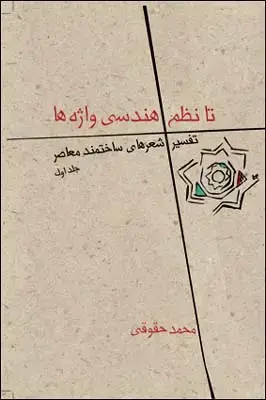 تا نظم هندسی واژه ها
تفسیر شعرهای ساختمند معاصر
جلد اول
محمد حقوقی